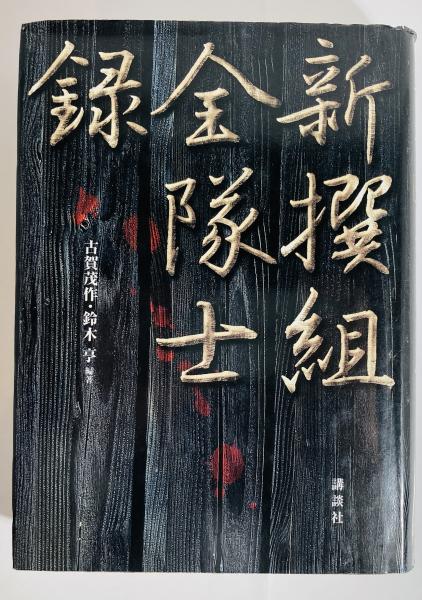 新撰組
全隊士
録
古賀茂作・鈴木 亨 編著
講談社